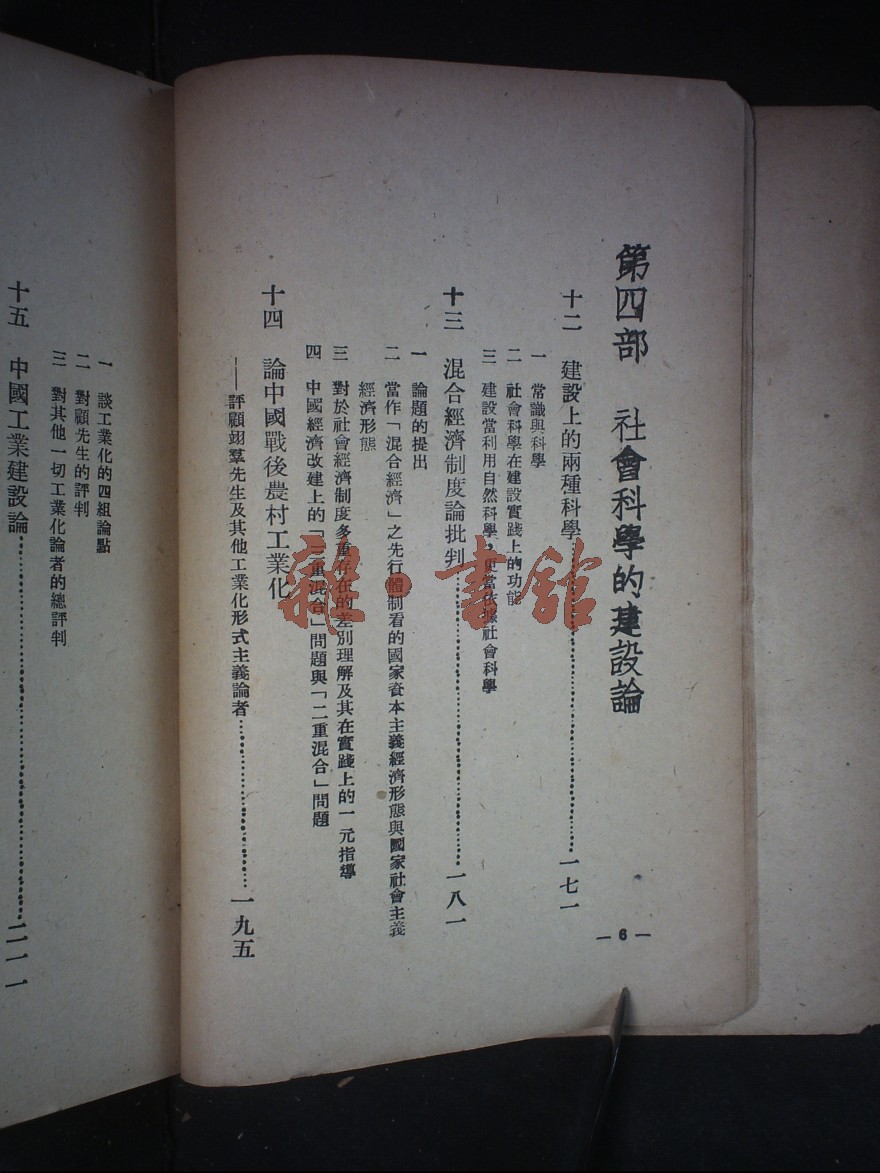 第四部　社會科學的建設論
十二　建設上的兩種科學……一七一
一　常識與科學
二　社會科學在建設實踐上的功能
三　建設當利用自然科學、更當依據社會科學
十三　混合經濟制度論批判……一八一
一　論題的提出
二　當作「混合經濟」之先行體制看的國家資本主義經濟形態與國家社會主義
經濟形態
三　對於社會經濟制度多重存在的差別理解及其在實踐上的一元指導
四　中國經濟改建上的「三重混合」問題與「二重混合」問題
十四　論中國戰後農村工業化
——評顧翊羣先生及其他工業化形式主義論者……一九五
— 6 —
一　談工業化的四組論點
二　對顧先生的評判
三　對其他一切工業化論者的總評判
十五　中國工業建設論……二一一
雜·書館